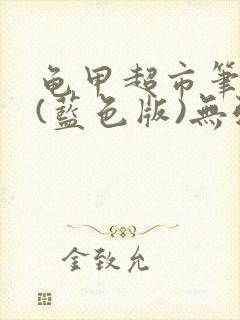 龟甲超市筆
(藍色版)無
金致允